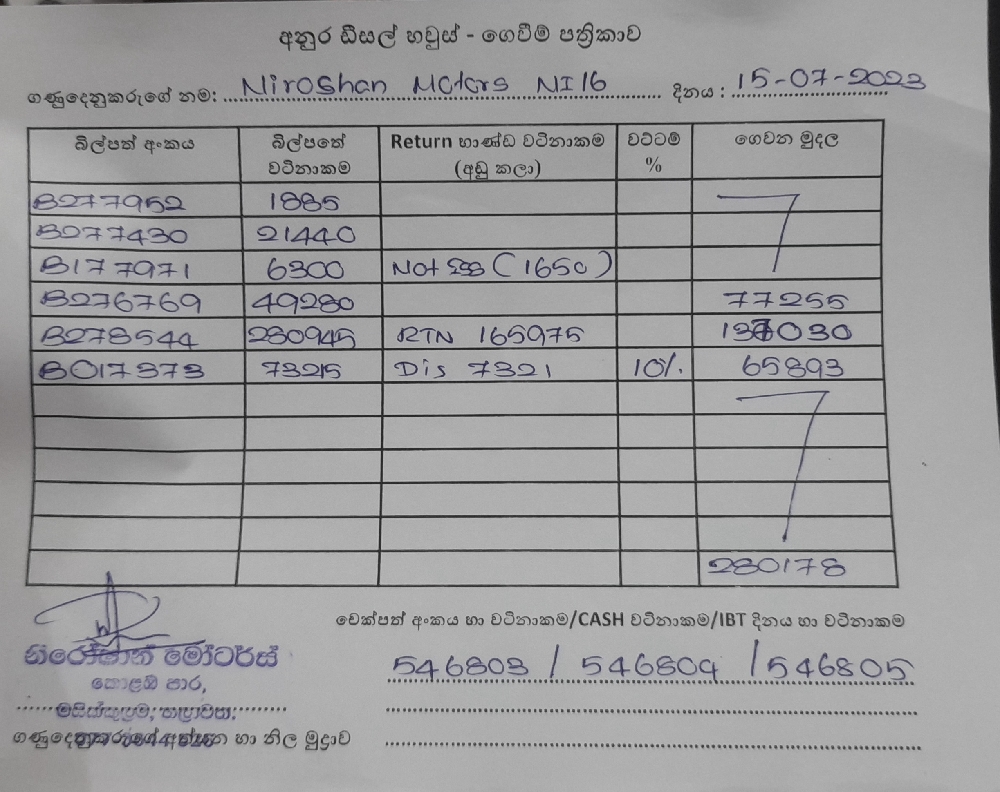 අනුර ඩීසල් හවුස් - ගෙවීම් පත්‍රිකාව
ගණුදෙනුකරුගේ නම: Niroshan Motors NI16 දිනය : 15-07-2023
බිල්පත් අංකය බිල්පතේ වටිනාකම Return භාණ්ඩ වටිනාකම (අඩු කලා) වට්ටම් % ගෙවන මුදල
B277952 1885
B277430 21440
B177971 6300 Not (1650)
B276769 49280 77255
B278544 280945 RTN 165975 137030
B017373 73215 Dis 7321 10% 65893
280178
චෙක්පත් අංකය හා වටිනාකම/CASH වටිනාකම/IBT දිනය හා වටිනාකම
නිරෝෂාන් මෝටර්ස්
546803 / 546804 / 546805
කොළඹ පාර,
ගණුදෙනුකරුගේ අත්සන හා නිල මුද්‍රාව